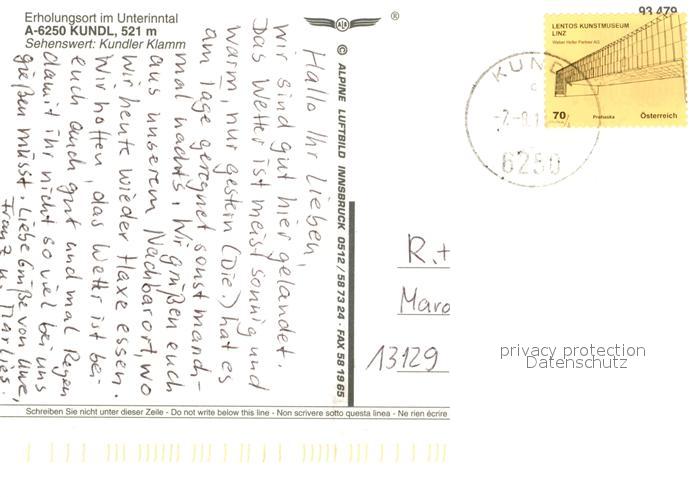 Erholungsort im Unterinntal
A-6250 KUNDL, 521 m
Sehenswert: Kundler Klamm
93 479
®
© ALPINE LUFTBILD INNSBRUCK 0512/587324 · FAX 581965
Hallo Ihr Lieben,
wir sind gut hier gelandet.
Das Wetter ist meist sonnig und
warm, nur gestern (Die.) hat es
am Tage geregnet sonst manch-
mal nachts. Wir grüßen euch
aus unserem Nachbarort, wo
wir heute wieder Haxe essen.
Wir hoffen, das Wetter ist bei
euch auch gut und mal Regen
damit ihr nicht so viel bei uns
gießen müsst. Liebe Grüße von Uwe,
Franz u. Marlies.
LENTOS KUNSTMUSEUM
LINZ
Weber Hofer Partner AG
70
Prohaska
Österreich
KUND
6250
R. +
Maro
13129
privacy protection
Datenschutz
Schreiben Sie nicht unter dieser Zeile - Do not write below this line - Non scrivere sotto questa linea - Ne rien écrire